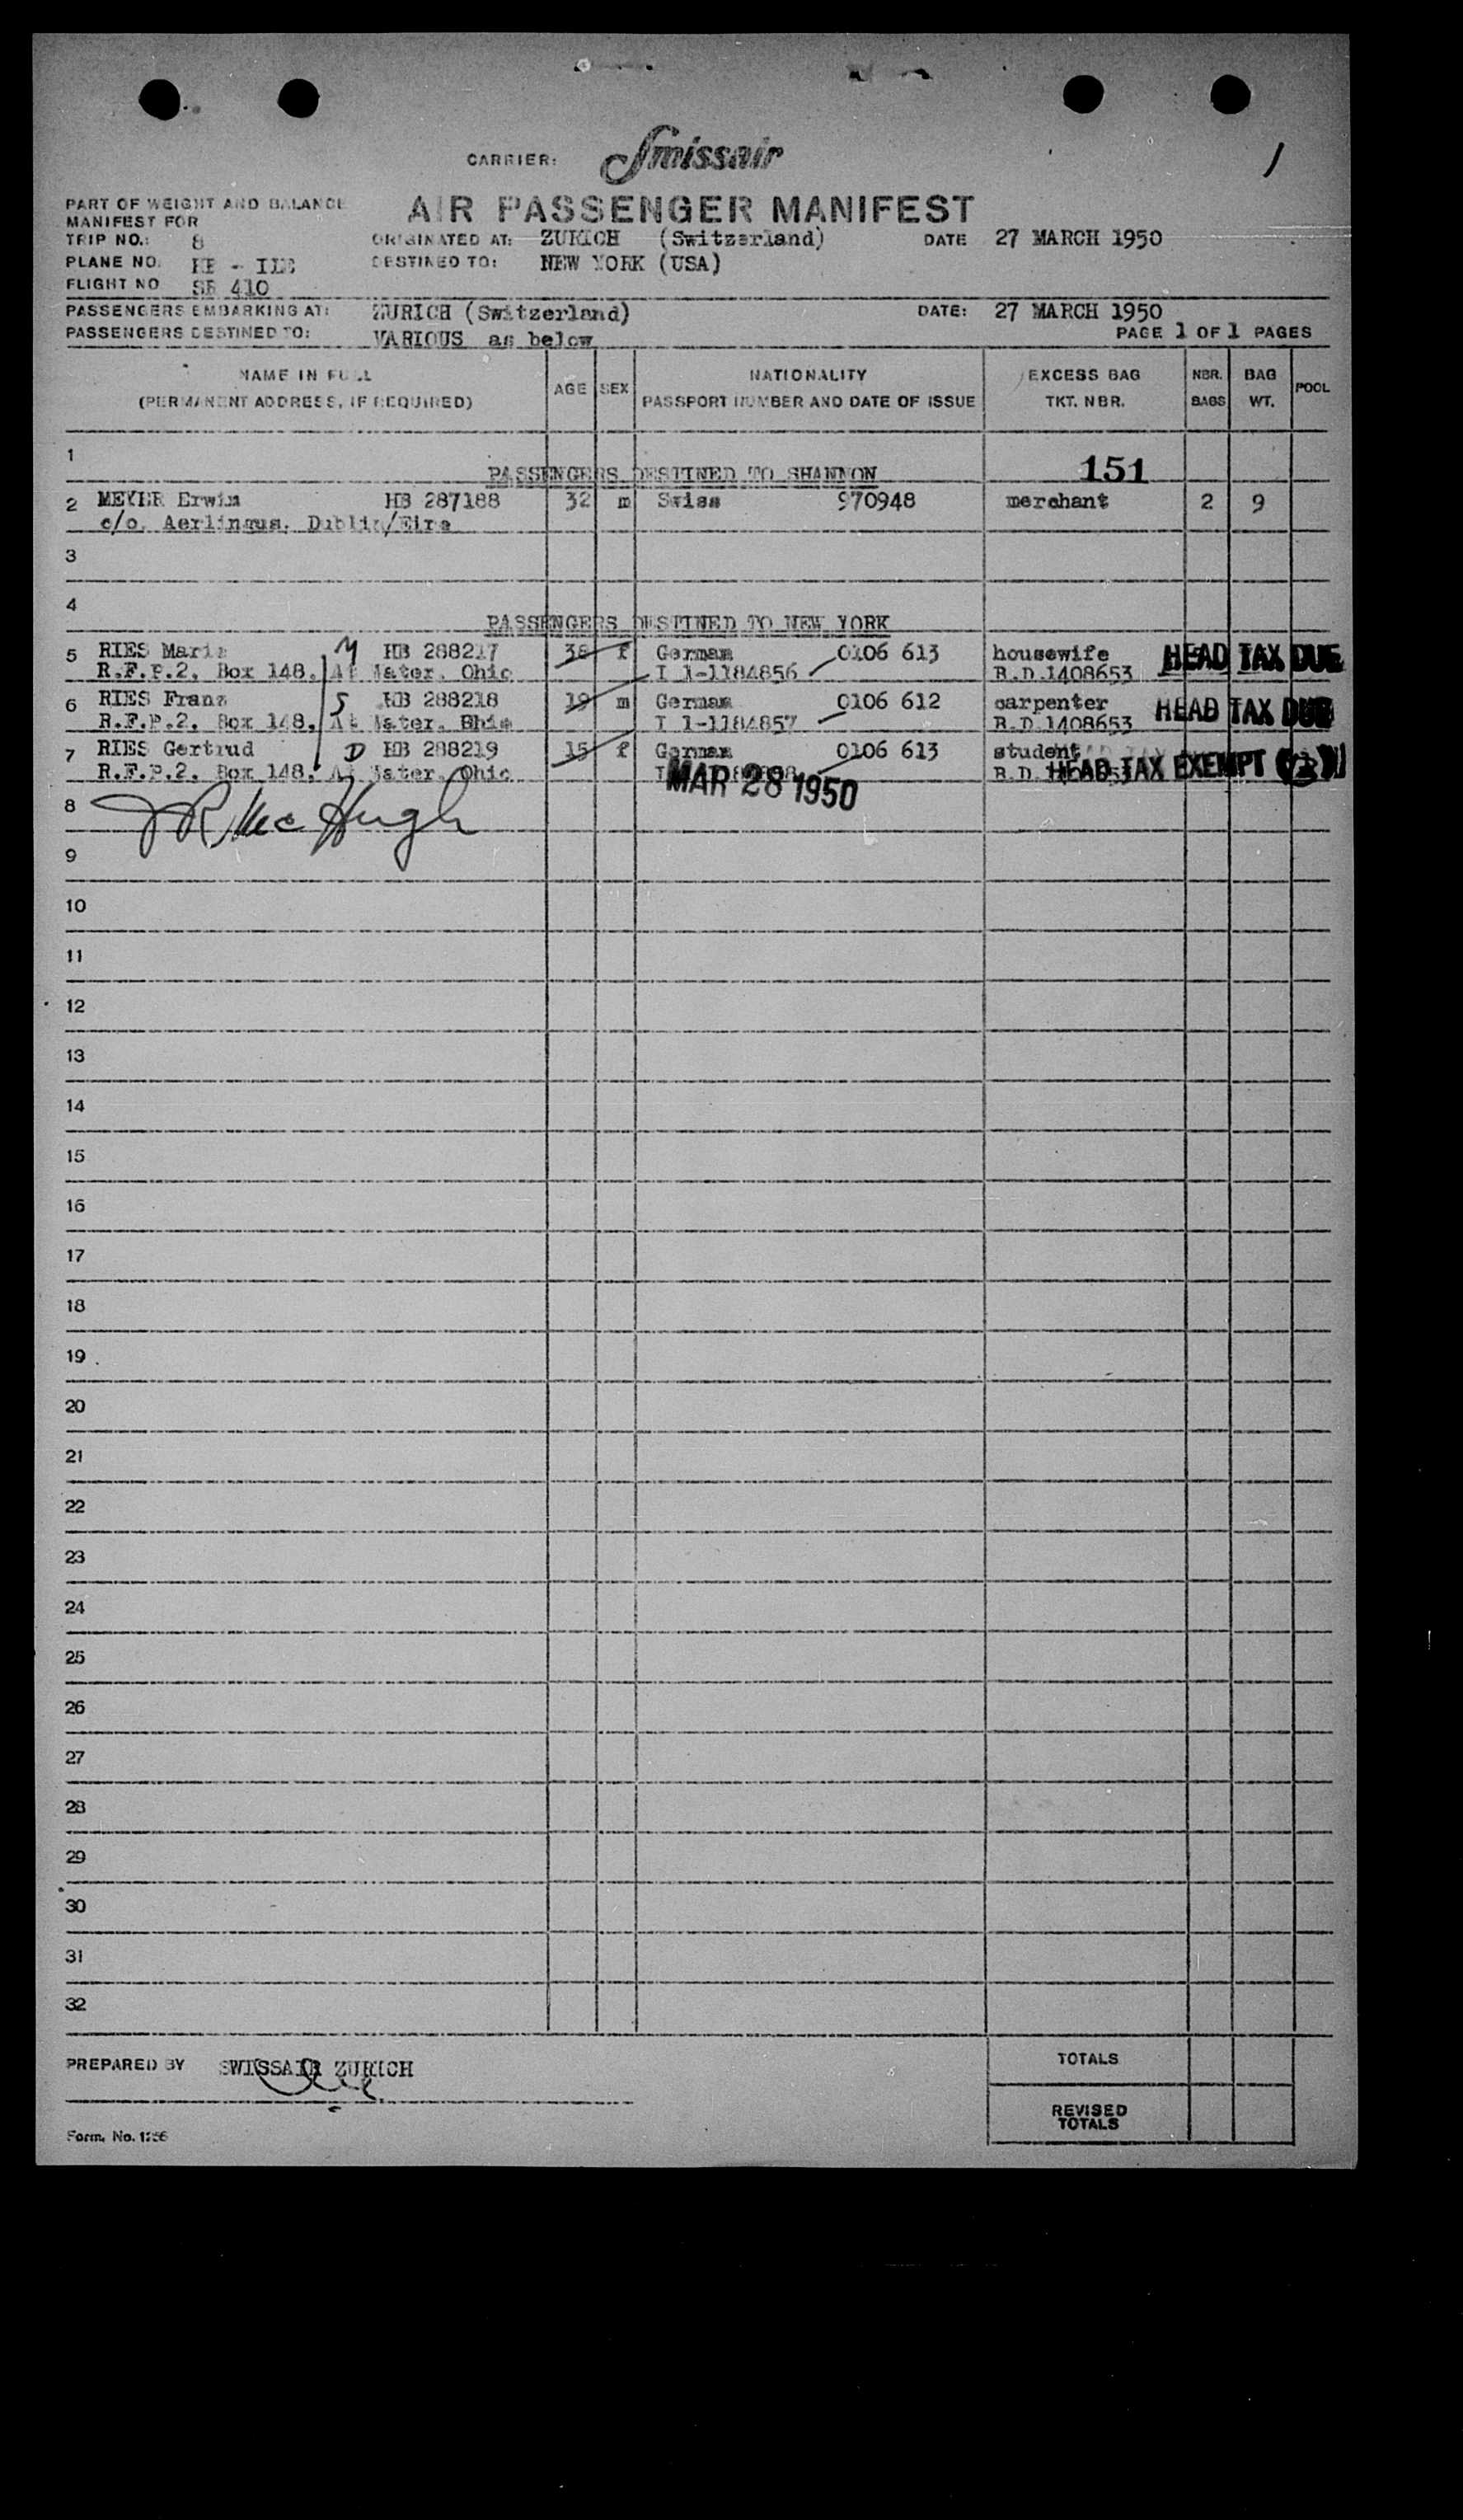 CARRIER: Swissair
1
PART OF WEIGHT AND BALANCE
MANIFEST FOR
AIR PASSENGER MANIFEST
TRIP NO.: 8 ORIGINATED AT: ZURICH (Switzerland) DATE 27 MARCH 1950
PLANE NO. DESTINED TO: NEW YORK (USA)
FLIGHT NO SR 410
PASSENGERS EMBARKING AT: ZURICH (Switzerland) DATE: 27 MARCH 1950
PASSENGERS DESTINED TO: VARIOUS as below PAGE 1 OF 1 PAGES
NAME IN FULL (PERMANENT ADDRESS, IF REQUIRED) AGE SEX NATIONALITY PASSPORT NUMBER AND DATE OF ISSUE EXCESS BAG TKT. NBR. NBR. BAGS BAG WT. POOL
1 PASSENGERS DESTINED TO SHANNON 151
2 MEYER Erwin HB 287188 32 m Swiss 970948 merchant 2 9
c/o. Aerlingus. Dublin/Eire
3
4 PASSENGERS DESTINED TO NEW YORK
5 RIES Maria M HB 288217 38 f German 0106 613 housewife HEAD TAX DUE
R.F.P.2. Box 148. At Water. Ohio I 1-1184856 R.D.1408653
6 RIES Franz S HB 288218 19 m German 0106 612 carpenter HEAD TAX DUE
R.F.P.2. Box 148. At Water. Ohio I 1-1184857 R.D.1408653
7 RIES Gertrud D HB 288219 15 f German 0106 613 student
R.F.P.2. Box 148. At Water. Ohio R.D. HEAD TAX EXEMPT
MAR 28 1950
8 JR McHugh
9
10
11
12
13
14
15
16
17
18
19
20
21
22
23
24
25
26
27
28
29
30
31
32
PREPARED BY SWISSAIR ZURICH TOTALS
REVISED TOTALS
Form. No. 1256